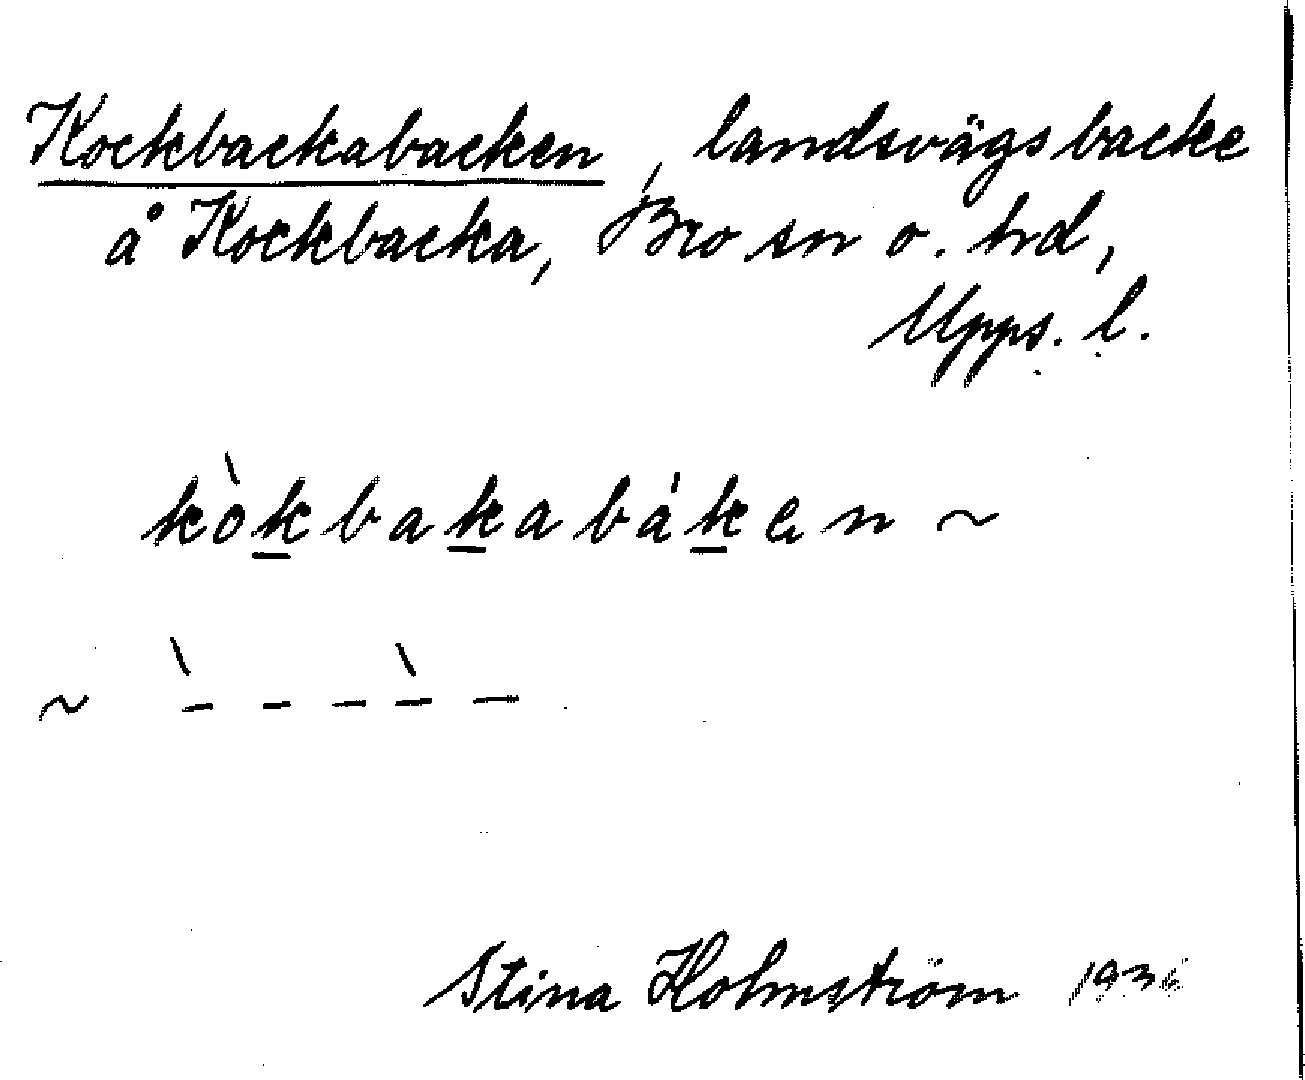 Kockbackabacken, landsvägsbacke
å Kockbacka, Bro sn o. hd,
Upps. l.
kòkbakabáken ~
~ ̀– – – ̀– –
Stina Holmström